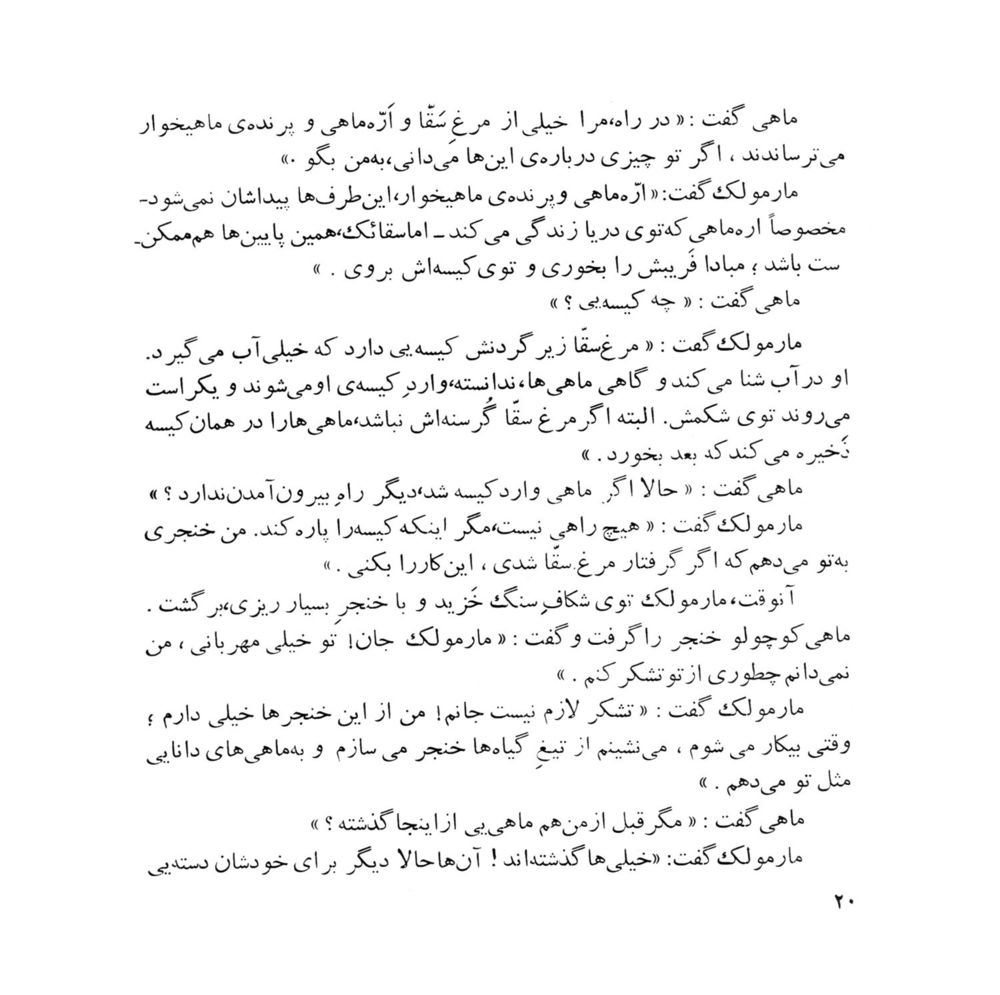 ماهی گفت : « در راه، مرا خیلی از مرغِ سَقّا و اَرّه‌ماهی و پرنده‌ی ماهیخوار
می‌ترساندند ، اگر تو چیزی درباره‌ی این‌ها می‌دانی، به‌من بگو . »
مارمولک گفت: « ارّه‌ماهی و پرنده‌ی ماهیخوار، این‌طرف‌ها پیداشان نمی‌شود-
مخصوصاً اره‌ماهی که توی دریا زندگی می‌کند ـ اما سقائک، همین پایین‌ها هم‌ممکن-
ست باشد ؛ مبادا فَریبش را بخوری و توی کیسه‌اش بروی . »
ماهی گفت : « چه کیسه‌یی ؟ »
مارمولک گفت : « مرغ‌سقّا زیر گردنش کیسه‌یی دارد که خیلی آب می‌گیرد.
او در آب شنا می‌کند و گاهی ماهی‌ها، ندانسته، واردِ کیسه‌ی او می‌شوند و یکراست
می‌روند توی شکمش. البته اگر مرغ سقّا گُرسنه‌اش نباشد، ماهی‌ها را در همان کیسه
ذَخیره می‌کند که بعد بخورد . »
ماهی گفت : « حالا اگر ماهی وارد کیسه شد، دیگر راهِ بیرون‌آمدن ندارد ؟ »
مارمولک گفت : « هیچ راهی نیست، مگر اینکه کیسه‌را پاره کند. من خنجری
به‌تو می‌دهم که اگر گرفتار مرغ سقّا شدی ، این‌کار را بکنی . »
آنوقت، مارمولک توی شکافِ سنگ خَزید و با خنجرِ بسیار ریزی، برگشت .
ماهی کوچولو خنجر را گرفت و گفت : « مارمولک جان! تو خیلی مهربانی ، من
نمی‌دانم چطوری از تو تشکر کنم . »
مارمولک گفت : « تشکر لازم نیست جانم! من از این خنجرها خیلی دارم ؛
وقتی بیکار می‌شوم ، می‌نشینم از تیغِ گیاه‌ها خنجر می‌سازم و به‌ماهی‌های دانایی
مثل تو می‌دهم . »
ماهی گفت : « مگر قبل از من هم ماهی‌یی از اینجا گذشته ؟ »
مارمولک گفت: «خیلی‌ها گذشته‌اند ! آن‌ها حالا دیگر برای خودشان دسته‌یی
۲۰